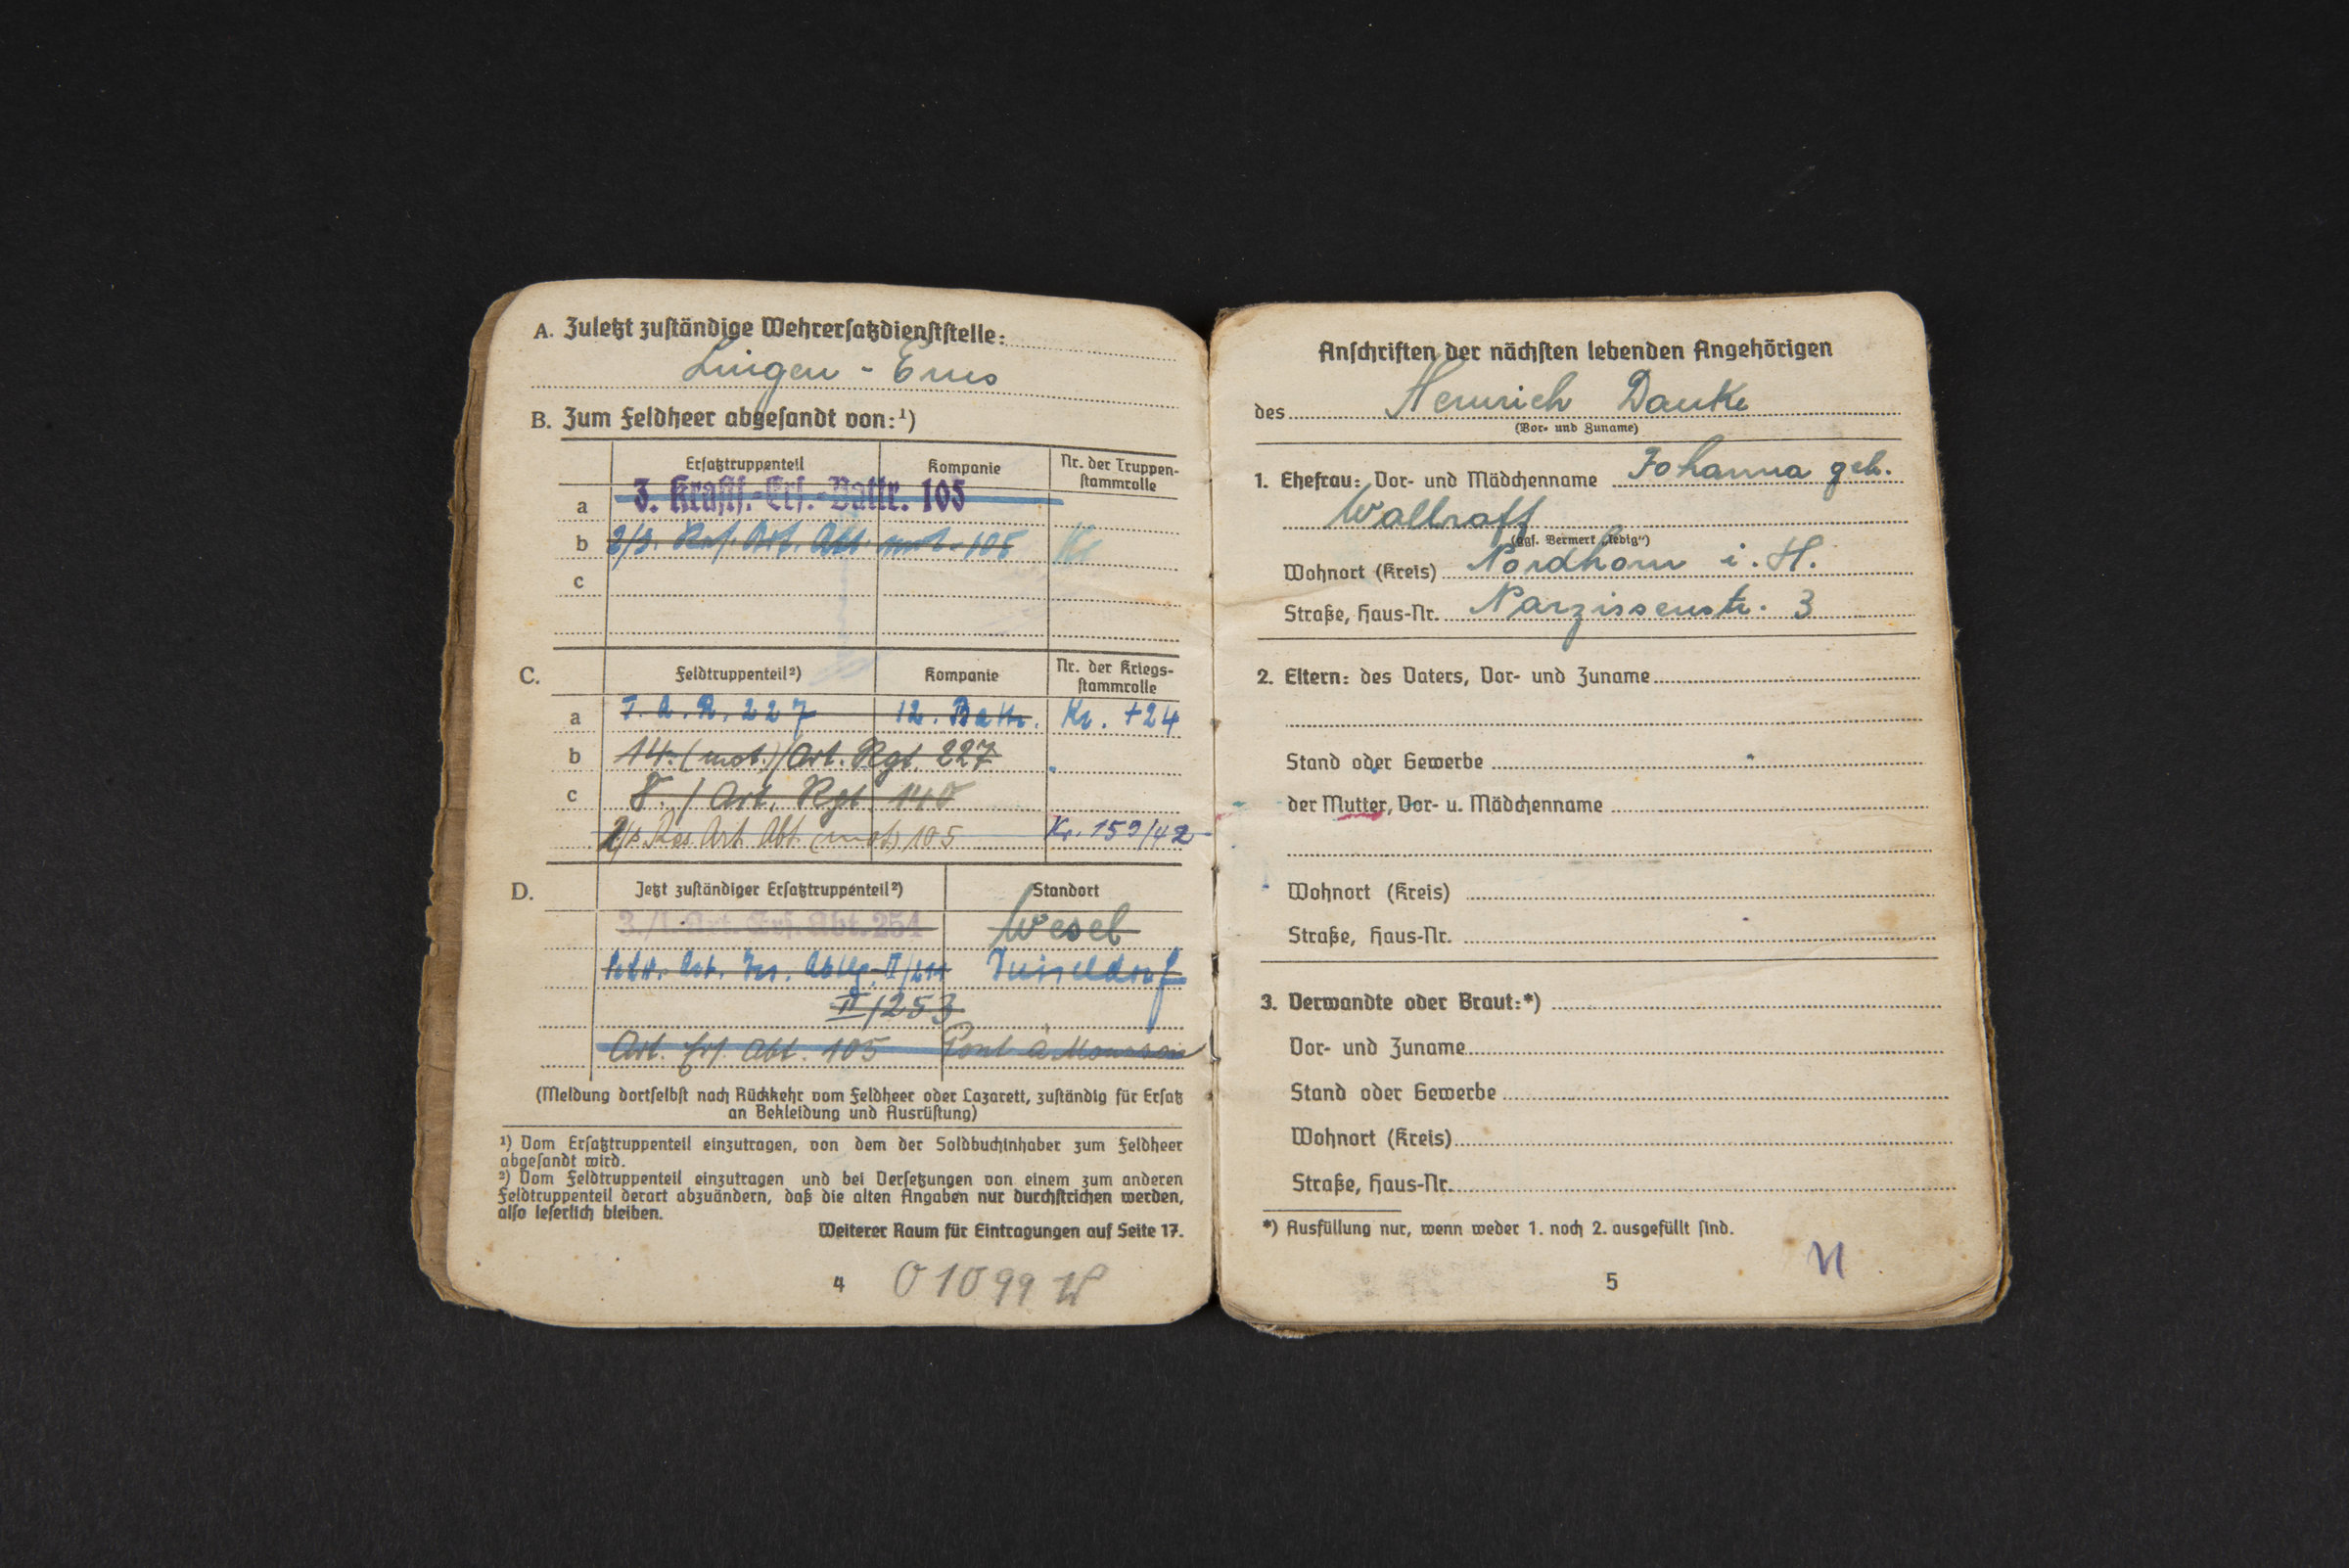 A. Zuletzt zuständige Wehrersatzdienststelle:
Lingen - Ems
B. Zum Feldheer abgesandt von:¹)
Ersatztruppenteil Kompanie Nr. der Truppen-
stammrolle
a 3. Kraftf.-Ers.-Battr. 105
b 2/3. Art. Abt. mot. 105
c
C. Feldtruppenteil²) Kompanie Nr. der Kriegs-
stammrolle
a F. A. R. 227 12. Battr. Kr. 724
b 14. (mot.)/Art. Rgt. 227
c 8. / Art. Rgt. 140
Res. Art. Abt. (mot) 105 Kr. 159/42
D. Jetzt zuständiger Ersatztruppenteil²) Standort
3./l. Art. Ers. Abt. 254 Wesel
Art. Düsseldorf
II/253
Art. Ers. Abt. 105 Pont à Mousson
(Meldung dortselbst nach Rückkehr vom Feldheer oder Lazarett, zuständig für Ersatz
an Bekleidung und Ausrüstung)
¹) Vom Ersatztruppenteil einzutragen, von dem der Soldbuchinhaber zum Feldheer
abgesandt wird.
²) Vom Feldtruppenteil einzutragen und bei Versetzungen von einem zum anderen
Feldtruppenteil derart abzuändern, daß die alten Angaben nur durchstrichen werden,
also leserlich bleiben.
Weiterer Raum für Eintragungen auf Seite 17.
4 01099 W
Anschriften der nächsten lebenden Angehörigen
des Heinrich Danke
(Vor- und Zuname)
1. Ehefrau: Vor- und Mädchenname Johanna geb.
Wallraff
(ggf. Vermerk „ledig“)
Wohnort (Kreis) Nordhorn i. H.
Straße, Haus-Nr. Narzissenstr. 3
2. Eltern: des Vaters, Vor- und Zuname
Stand oder Gewerbe
der Mutter, Vor- u. Mädchenname
Wohnort (Kreis)
Straße, Haus-Nr.
3. Verwandte oder Braut:*)
Vor- und Zuname
Stand oder Gewerbe
Wohnort (Kreis)
Straße, Haus-Nr.
*) Ausfüllung nur, wenn weder 1. noch 2. ausgefüllt sind.
5